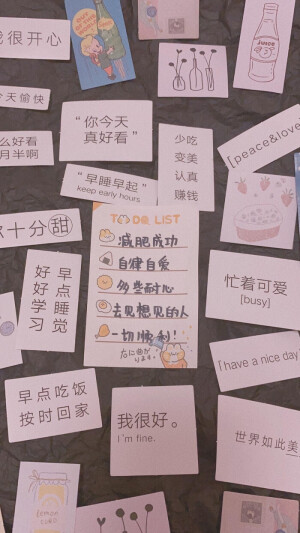 我很开心
JUICE
今天愉快
“你今天
真好看”
少吃
变美
认真
赚钱
[peace&love
么好看
月半啊
“早睡早起”
keep early hours
十分甜
TO DO LIST
减肥成功
自律自爱
多些耐心
去见想见的人
一切顺利!
右に曲が
ります。
好好学习
早点睡觉
忙着可爱
[busy]
have a nice day
早点吃饭
按时回家
我很好。
I'm fine.
世界如此美
lemon